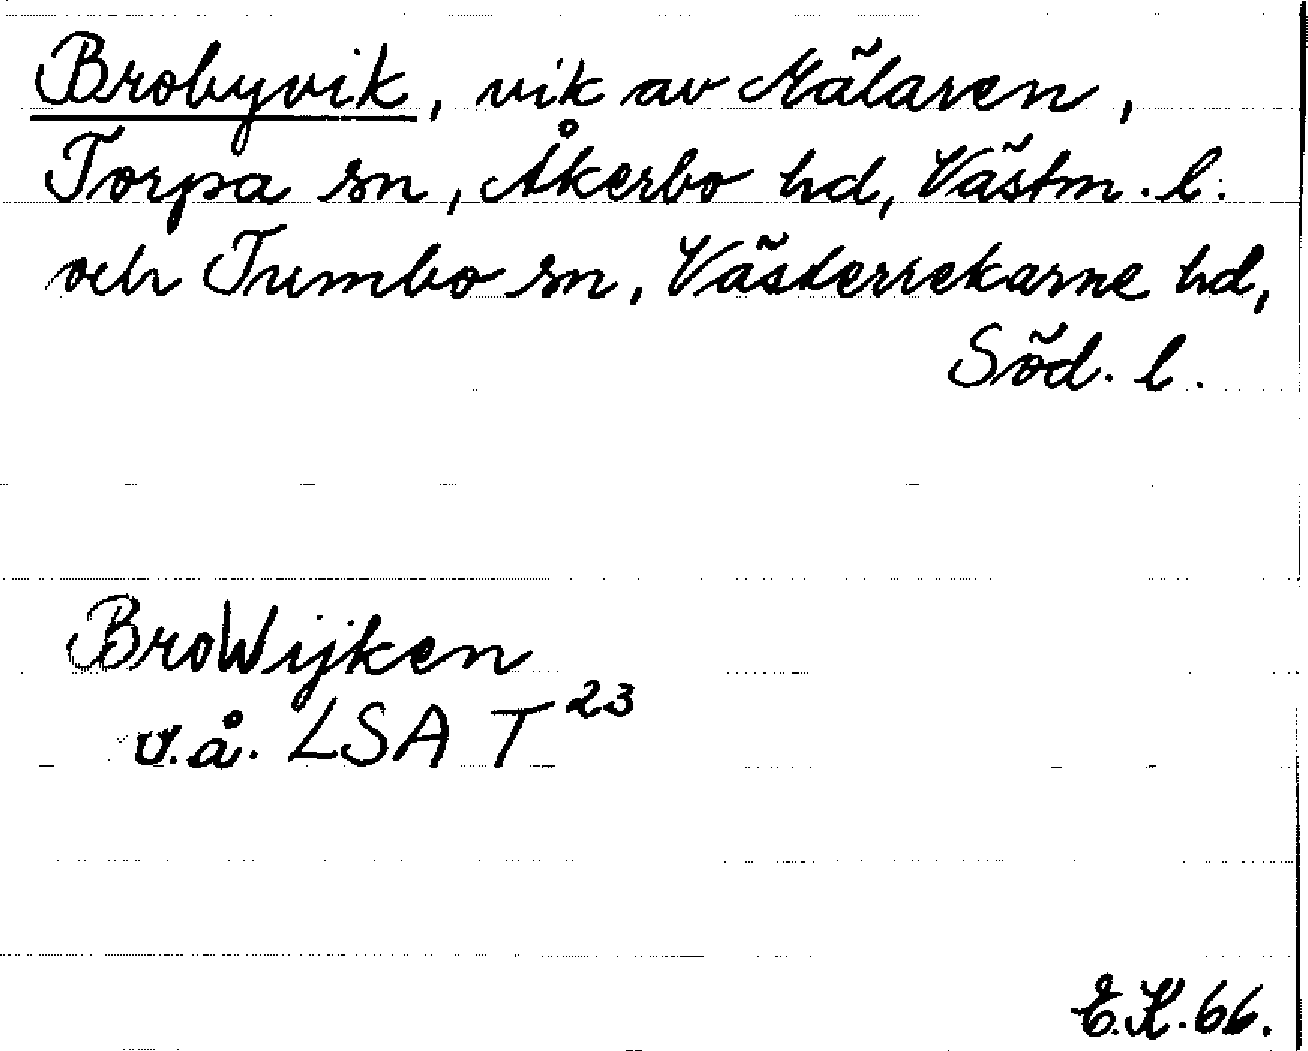 Brobyvik, vik av Mälaren,
Torpa sn, Åkerbo hd, Västm. l.
och Tumbo sn, Västerrekarne hd,
Söd. l.
BroWijken
v.å. LSA T 23
E.K. 66.